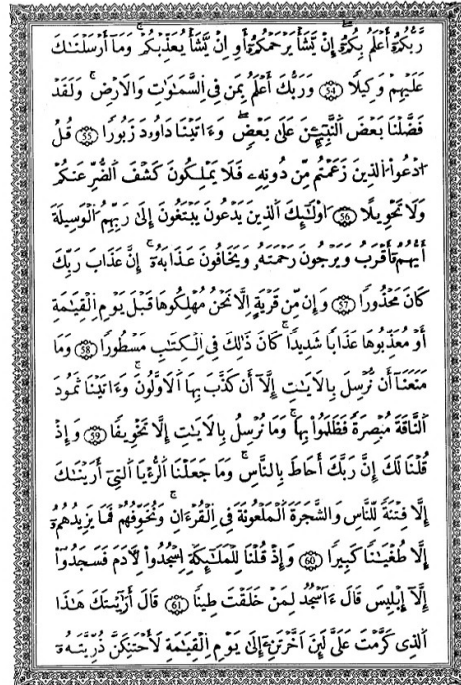 رَّبُّكُمُۥٓ أَعْلَمُ بِكُمُۥٓ إِنْ يَّشَأْ يَرْحَمْكُمُۥٓ أَوِ اِنْ يَّشَأْ يُعَذِّبْكُمْ وَمَآ أَرْسَلْنَٰكَ
عَلَيْهِمْ وَكِيلًا 54 وَرَبُّكَ أَعْلَمُ بِمَن فِي اِ۬لسَّمَٰوَٰتِ وَالَارْضِ وَلَقَدْ
فَضَّلْنَا بَعْضَ اَ۬لنَّبِيٓـِٕۧنَ عَلَىٰ بَعْضٍ وَءَاتَيْنَا دَاوُۥدَ زَبُورًا 55 قُلُ
اُ۟دْعُوا۟ اُ۬لذِينَ زَعَمْتُم مِّن دُونِهِۦ فَلَا يَمْلِكُونَ كَشْفَ اَ۬لضُّرِّ عَنكُمْ
وَلَا تَحْوِيلًا 56 ا۟وْلَٰٓئِكَ اَ۬لذِينَ يَدْعُونَ يَبْتَغُونَ إِلَىٰ رَبِّهِمُ اُ۬لْوَسِيلَةَ
أَيُّهُمُۥٓ أَقْرَبُ وَيَرْجُونَ رَحْمَتَهُۥ وَيَخَافُونَ عَذَابَهُۥٓ إِنَّ عَذَابَ رَبِّكَ
كَانَ مَحْذُورًا 57 وَإِن مِّن قَرْيَةٍ اِلَّا نَحْنُ مُهْلِكُوهَا قَبْلَ يَوْمِ اِ۬لْقِيَٰمَةِ
أَوْ مُعَذِّبُوهَا عَذَابًا شَدِيدًا كَانَ ذَٰلِكَ فِي اِ۬لْكِتَٰبِ مَسْطُورًا 58 وَمَا
مَنَعَنَآ أَن نُّرْسِلَ بِالَايَٰتِ إِلَّآ أَن كَذَّبَ بِهَا اَ۬لَاوَّلُونَ وَءَاتَيْنَا ثَمُودَ
اَ۬لنَّاقَةَ مُبْصِرَةً فَظَلَمُوا۟ بِهَا وَمَا نُرْسِلُ بِالَايَٰتِ إِلَّا تَخْوِيفًا 59 وَإِذْ
قُلْنَا لَكَ إِنَّ رَبَّكَ أَحَاطَ بِالنَّاسِ وَمَا جَعَلْنَا اَ۬لرُّءْيَا اَ۬لتِےٓ أَرَيْنَٰكَ
إِلَّا فِتْنَةً لِّلنَّاسِ وَالشَّجَرَةَ اَ۬لْمَلْعُونَةَ فِي اِ۬لْقُرْءَانِ وَنُخَوِّفُهُمْ فَمَا يَزِيدُهُمُۥٓ
إِلَّا طُغْيَٰنًا كَبِيرًا 60 وَإِذْ قُلْنَا لِلْمَلَٰٓئِكَةِ اِ۟سْجُدُوا۟ لِأٓدَمَ فَسَجَدُوٓا۟
إِلَّآ إِبْلِيسَ قَالَ ءَآسْجُدُ لِمَنْ خَلَقْتَ طِينًا 61 قَالَ أَرَٰٓيْتَكَ هَٰذَا
اَ۬لذِي كَرَّمْتَ عَلَيَّ لَئِنَ اَخَّرْتَنِۦٓ إِلَىٰ يَوْمِ اِ۬لْقِيَٰمَةِ لَأَحْتَنِكَنَّ ذُرِّيَّتَهُۥٓ